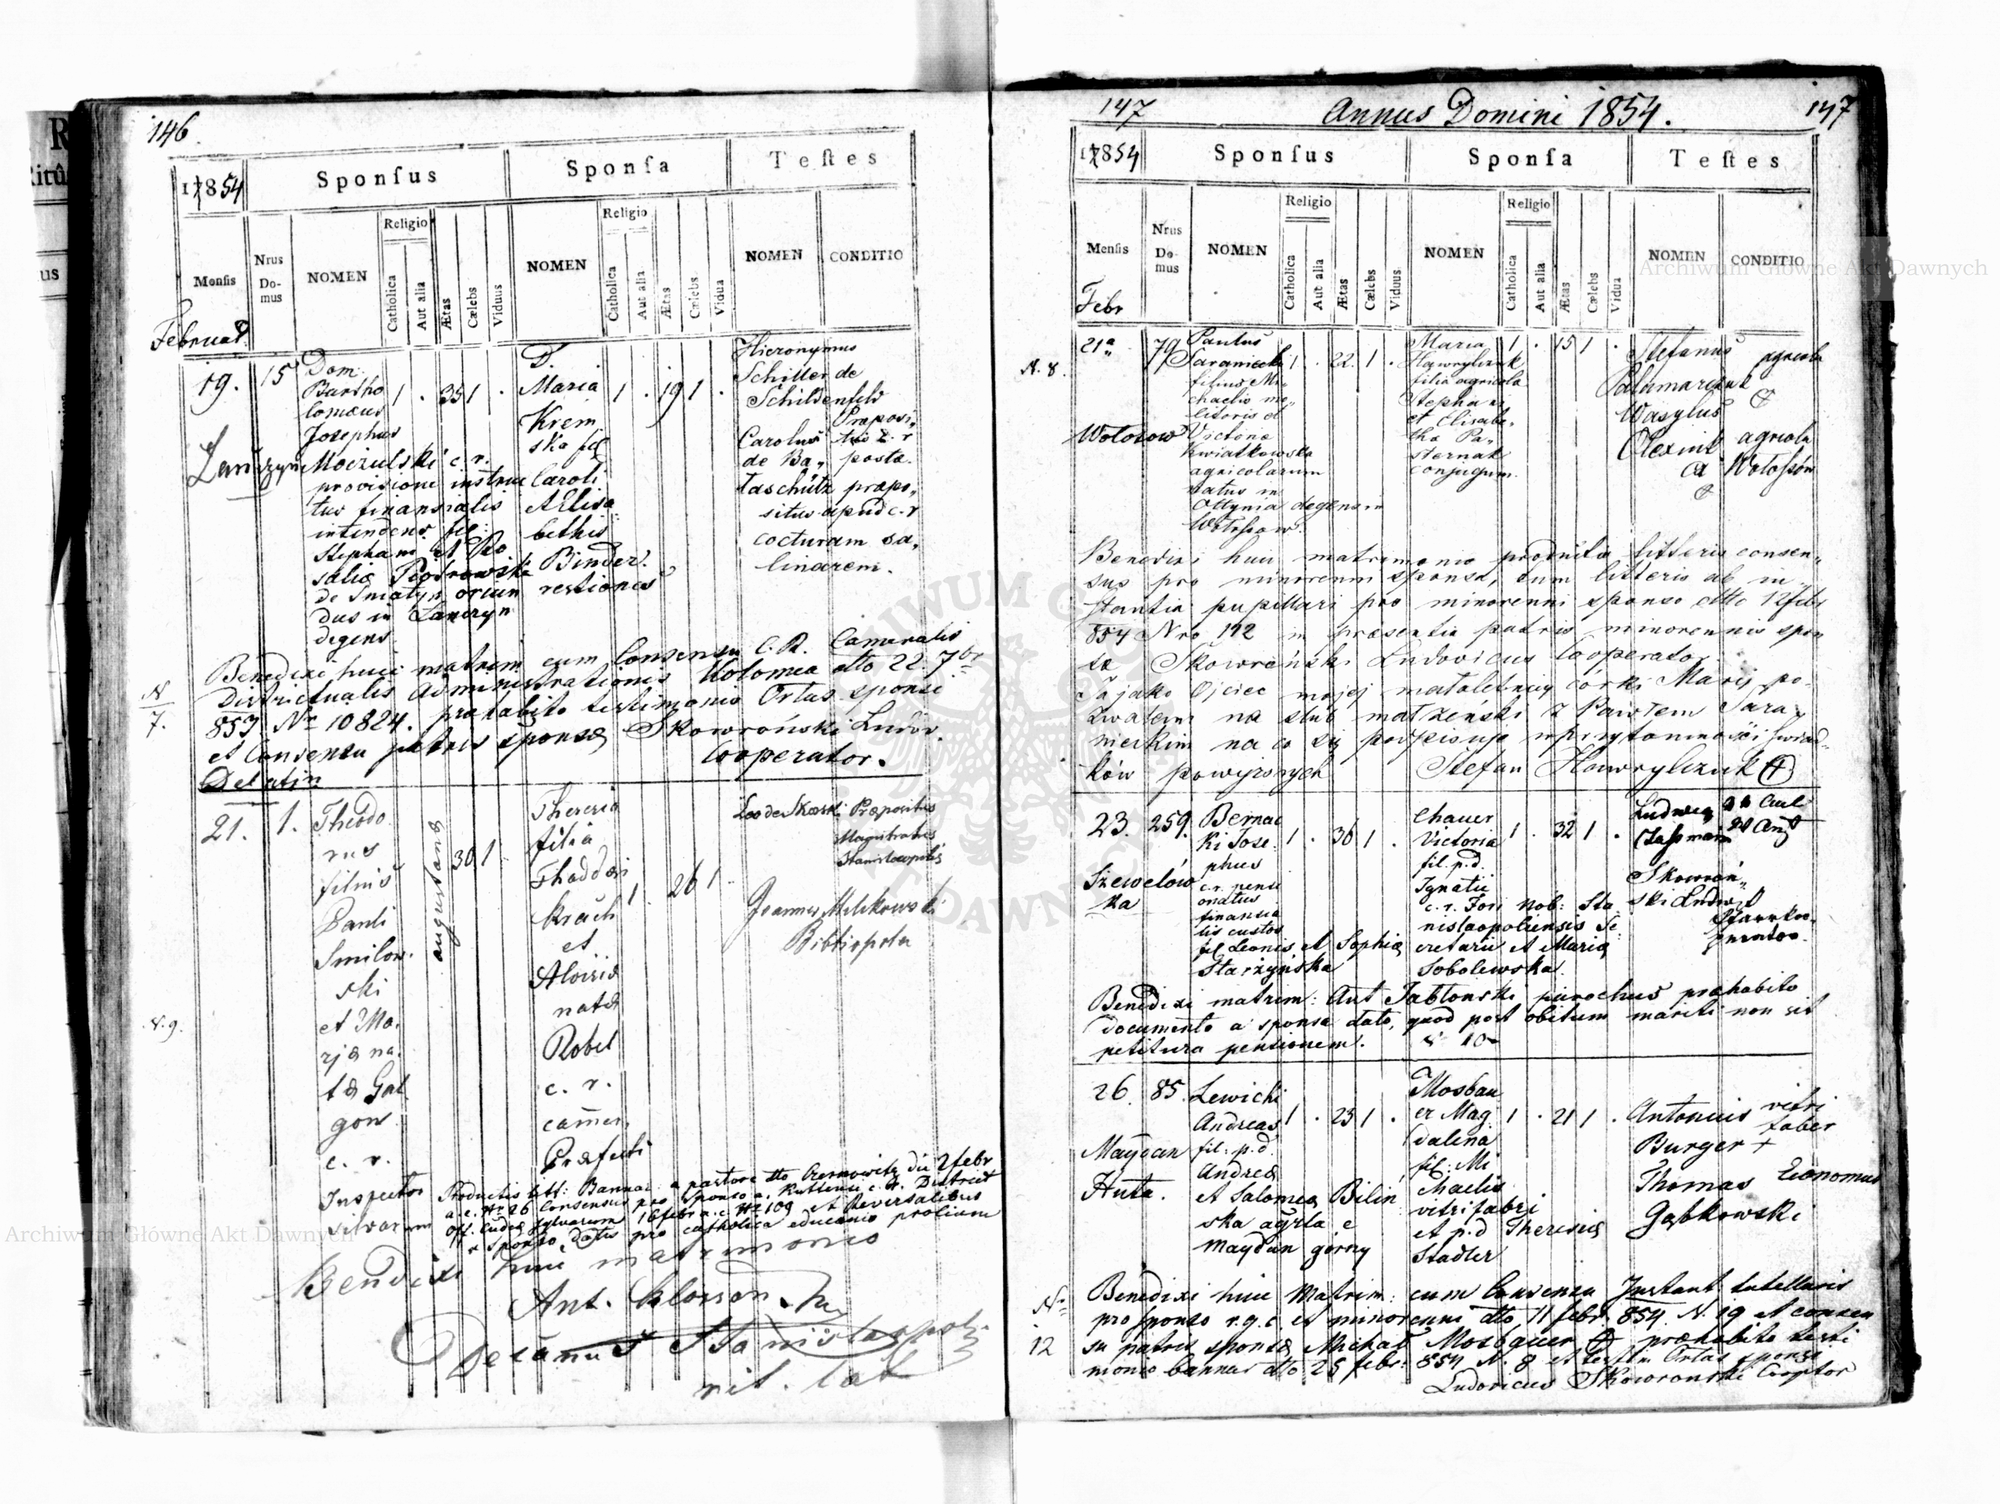 146
1854
Sponsus
Sponsa
Testes
Mensis
Nrus Domus
NOMEN
Religio
Catholica
Aut alia
Ætas
Cælebs
Viduus
NOMEN
Religio
Catholica
Aut alia
Ætas
Cælebs
Vidua
NOMEN
CONDITIO
Februar
19. 15
Dom.
Bartho
lomæus
Josephus
Moczulski c. r.
provisione instruc
tus finansialis
intendens fil:
Stephani et Ro
salia Piotrowska
de Sniatyn oriun
dus in Lanczyn
degens
1 . 35 1 .
D.
Maria
Krem
ska fil
Caroli
Elisa
bethis
Binder
1 . 19 1 .
Hieronymus
Schiller de
Schildenfeld
Carolus
de Ba„
taschütz præpo„
situs apud c. r
cocturam sa„
linarem.
Præposi„
posta
Lanczyn
Benedixi huic matrim cum Consensu C. R. Cameralis
Districtualis Administrationis Kolomea dtto 22. 7br
853 Nr 10824. præhabito testimonio Ortus sponsi
et Consensu patris sponsæ Skowroński Ludov.
Cooperator.
N
7.
Delatin
21. 1.
Theodo
rus
filius
Pauli
Smilow
ski
et Ma.
rjæ na.
tæ Gal
gon
c. r.
Inspector
silvarum
augustana
30 1
Theresia
filia
Thaddæi
Krach
et
Aloisiæ
natæ
Robel
c. r.
camer.
Præfecti
1 . 26 1
Leo de Skorski
Præpositus
Magistratus
Stanislaopolis
Joannes Milikowski
Bibliopola
N. 9.
Productis litt: Bannal: a pastore dtto Czernowitz die 2 febr
a. c. Nr 26 Consensus pro Sponso a. Kuttensi c. r. District
Off. silvarum 16 febr a. c. Nr 109 et Reversalibus
a sponso datis pro catholica educatio prolium
Benedixi huic matrimonio
Ant.
Decanus Stanislaopol.
rit. lat
147
Annus Domini 1854.
147
1854
Sponsus
Sponsa
Testes
Mensis
Nrus Domus
NOMEN
Religio
Catholica
Aut alia
Ætas
Cælebs
Viduus.
NOMEN
Religio
Catholica
Aut alia
Ætas
Cælebs
Vidua
NOMEN
CONDITIO
Febr
N. 8.
21a 79
Paulus
Saraniecki
filius Mi
chaelis mi
litoris et
Victoria
Kwiatkowska
agricolarum
natus in
Ottynia degens in
Wołosow
1 . 22 1 .
Maria
Hawrylczuk
filia agricola
Stephani
et Elisabe
tha Pa„
sternak
conjugum.
1 . 15 1 .
Stefanus
Palamarczuk
Wasylus
Olexiuk
agricola
agricola
Wołosów
Wołosow
Benedixi huic matrimonio productis litteris consen„
sus pro minorenni sponsa, tum litteris ab in„
stantia pupillari pro minorenni sponso dtto 12 febr
854 Nro 112 in præsentia patris minorennis spon
sæ Skowroński Ludovicus Cooperator
Ja jako Ojciec mojej małoletniej córki Marij po„
zwalam na ślub małżeński z Pawłem Sara„
nieckim na co się podpisuję w przytomności świad„
ków powyższych Stefan Hawrylczuk +
23. 259.
Bernac
ki Jose
phus
c. r. pensi
onatus
finansia
lis custos
fil Leonis et Sophiæ
Starzyńska
1 . 36 1 .
Chauer
Victoria
fil. p. d.
Ignatii
c. r. Fori Nob: Sta
nislaopoliensis Se
cretarii et Mariæ
Sobolewska.
1 . 32 1 .
Ludwig
Skowroń„
ski Ludw
Szewelów
ka
Benedixi matrim: Ant Jabłonski parochus præhabito
documento a sponsa dato, quod post obitum mariti non sit
petitura pensionem.
26. 85.
Lewicki
Andreas
fil. p. d.
Andreæ
et Salomeæ Bilin
ska agrlæ e
Maydan górny
1 . 23 1 .
Mosbau
er Mag
dalena
fil: Mi
chaelis
vitri fabri
et p. d Theresiæ
Stadler
1 . 21 1 .
Antonius
Burger +
Thomas
Gąbkowski
vitri
faber
Economus
Maydan
Huta.
Nr
12
Benedixi huic Matrim: cum Consensu Instant tutellaris
pro sponso r. g. c. et minorenni dtto 11 febr 854 N. 19 et consen
su patris sponsæ Michał Mosbauer + præhabito testi
monio bannus dtto 25 febr: 854 N. 8 et testim Ortus sponsæ
Ludovicus Skowronski Cooptor
Archiwum Główne Akt Dawnych
Archiwum Główne Akt Dawnych
ARCHIWUM GŁÓWNE AKT DAWNYCH